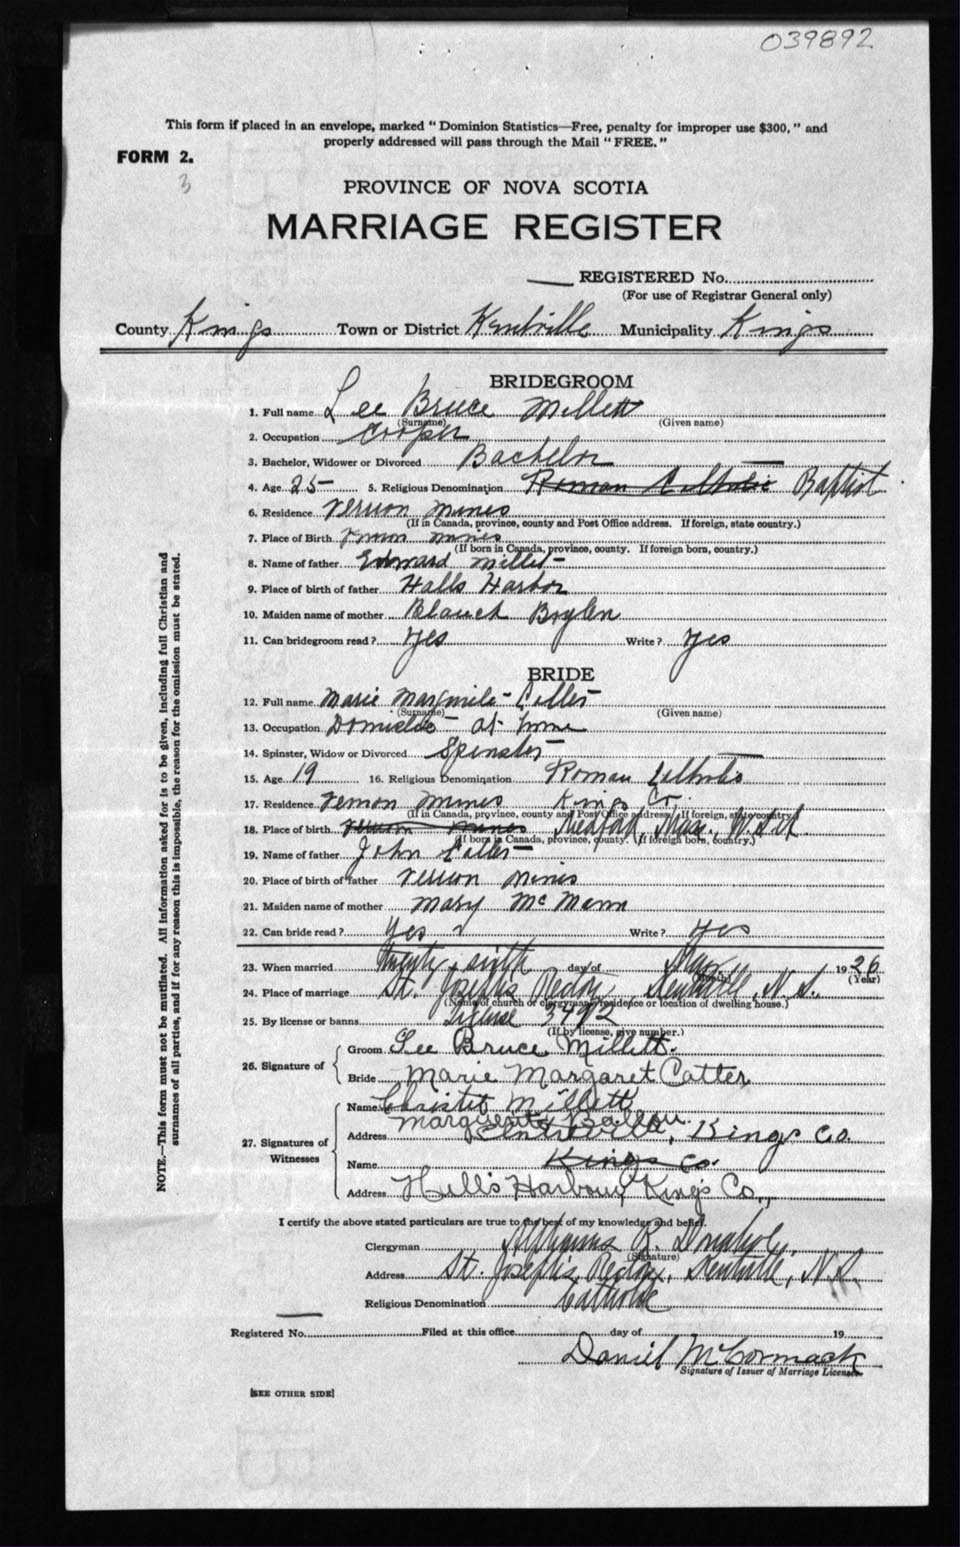 039892
This form if placed in an envelope, marked " Dominion Statistics—Free, penalty for improper use $300, " and
properly addressed will pass through the Mail " FREE. "
FORM 2.
3
PROVINCE OF NOVA SCOTIA
MARRIAGE REGISTER
REGISTERED No.
(For use of Registrar General only)
County Kings Town or District Kentville Municipality Kings
BRIDEGROOM
1. Full name Lee Bruce Millett
(Surname) (Given name)
2. Occupation Cooper
3. Bachelor, Widower or Divorced Bachelor
4. Age 25 5. Religious Denomination Roman Catholic Baptist
6. Residence Vernon Mines
(If in Canada, province, county and Post Office address. If foreign, state country.)
7. Place of Birth Vernon Mines
(If born in Canada, province, county. If foreign born, country.)
8. Name of father Edward Millett
9. Place of birth of father Halls Harbor
10. Maiden name of mother
11. Can bridegroom read? Yes Write? Yes
BRIDE
12. Full name Marie
(Surname) (Given name)
13. Occupation at home
14. Spinster, Widow or Divorced Spinster
15. Age 19 16. Religious Denomination Roman Catholic
17. Residence Vernon Mines Kings Co.
(If in Canada, province, county and Post Office address. If foreign, state country.)
18. Place of birth Vernon Mines Medford, Mass., U.S.A
(If born in Canada, province, county. If foreign born, country.)
19. Name of father John
20. Place of birth of father Vernon Mines
21. Maiden name of mother Mary McMann
22. Can bride read? Yes Write? Yes
23. When married Twenty sixth day of 1936
(Month) (Year)
24. Place of marriage St. Joseph's Rectory Kentville, N.S.
(Name of church or clergyman's residence or location of dwelling house.)
25. By license or banns License 3492
(If by license, give number.)
26. Signature of
Groom Lee Bruce Millett.
Bride Marie Margaret Catter
27. Signatures of Witnesses
Name Millett
Address Kentville, Kings Co.
Name Kings Co.
Address Hall's Harbour, King's Co.,
I certify the above stated particulars are true to the best of my knowledge and belief.
Clergyman
(Signature)
Address St. Joseph's Rectory, Kentville, N.S.
Religious Denomination Catholic
Registered No. Filed at this office day of 19
Daniel McCormack
Signature of Issuer of Marriage License.
[SEE OTHER SIDE]
NOTE.—This form must not be mutilated. All information asked for is to be given, including full Christian and
surnames of all parties, and if for any reason this is impossible, the reason for the omission must be stated.